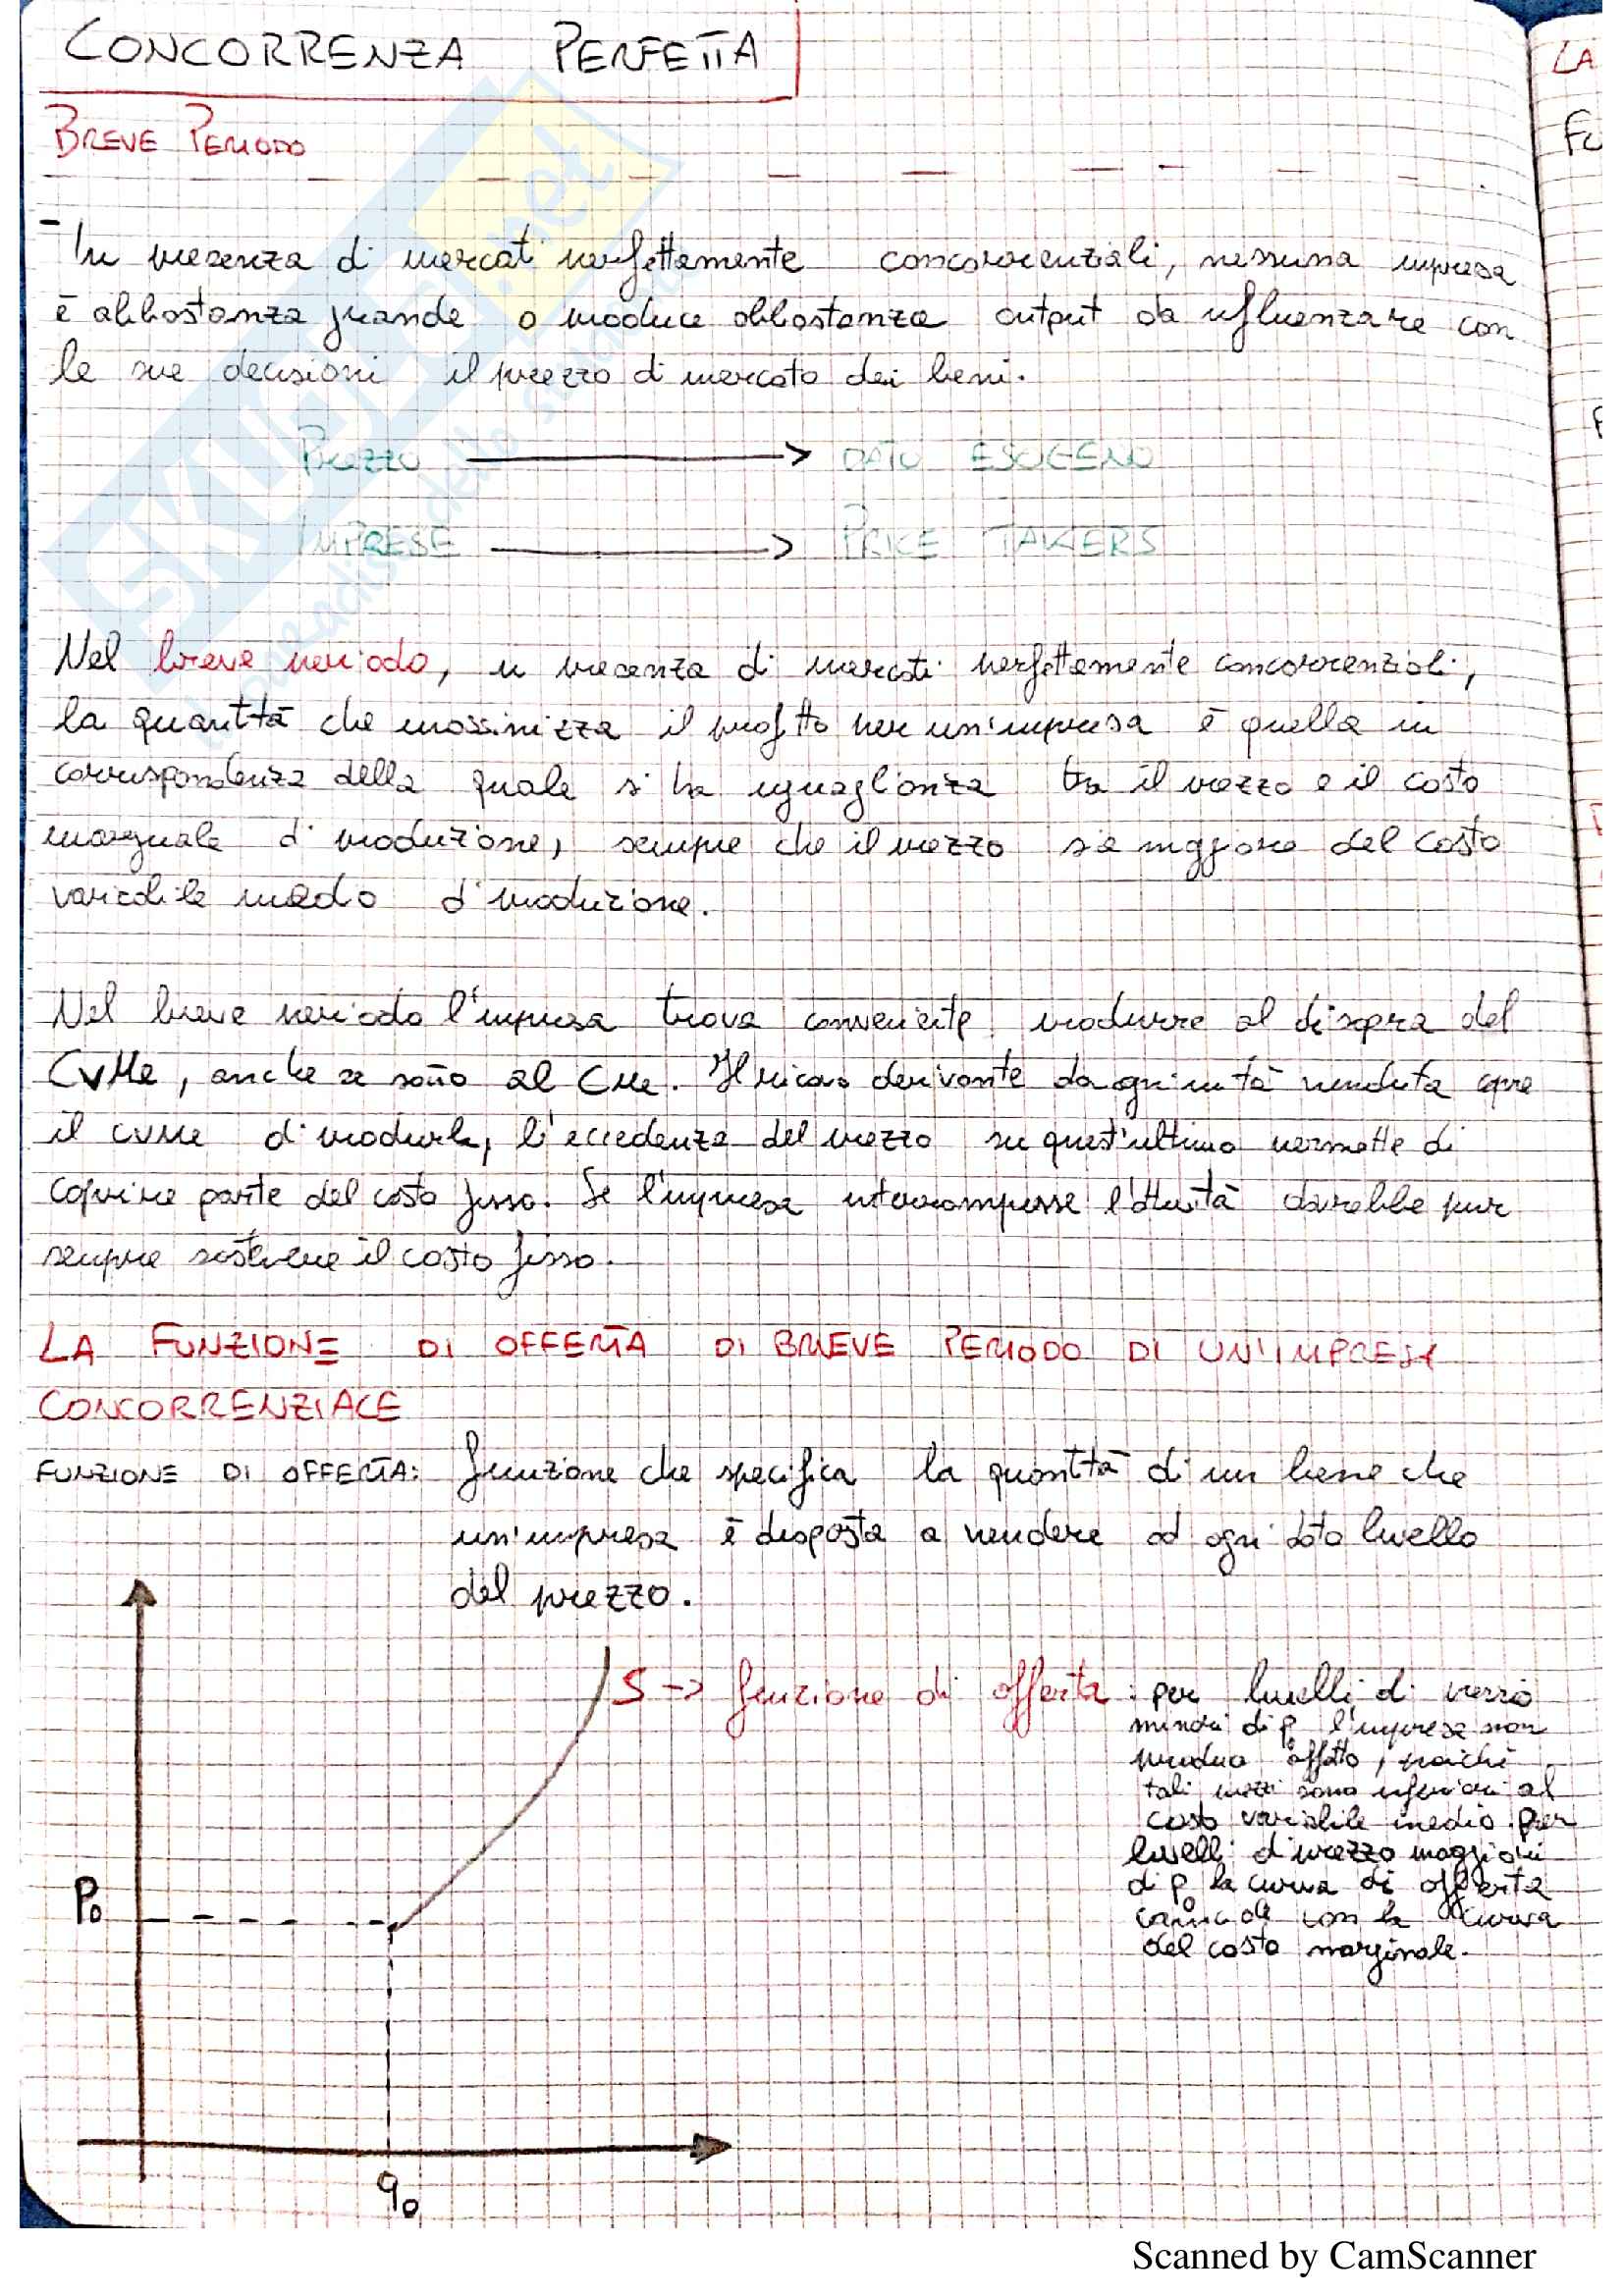 CONCORRENZA PERFETTA
BREVE PERIODO
- In presenza di mercati perfettamente concorrenziali, nessuna impresa
è abbastanza grande o produce abbastanza output da influenzare con
le sue decisioni il prezzo di mercato dei beni.
PREZZO → DATO ESOGENO
IMPRESE → PRICE TAKERS
Nel breve periodo, in presenza di mercati perfettamente concorrenziali,
la quantità che massimizza il profitto per un'impresa è quella in
corrispondenza della quale si ha uguaglianza tra il prezzo e il costo
marginale di produzione, sempre che il prezzo sia maggiore del costo
variabile medio di produzione.
Nel breve periodo l'impresa trova conveniente produrre al di sopra del
CVMe, anche se sotto al CMe. Il ricavo derivante da ogni unità venduta copre
il CVMe di produrla, l'eccedenza del prezzo su quest'ultimo permette di
coprire parte del costo fisso. Se l'impresa interrompesse l'attività dovrebbe pur
sempre sostenere il costo fisso.
LA FUNZIONE DI OFFERTA DI BREVE PERIODO DI UN'IMPRESA
CONCORRENZIALE
FUNZIONE DI OFFERTA: funzione che specifica la quantità di un bene che
un'impresa è disposta a vendere ad ogni dato livello
del prezzo.
S → funzione di offerta: per livelli di prezzo
minori di p₀ l'impresa non
produce affatto, poiché
tali prezzi sono inferiori al
costo variabile medio. Per
livelli di prezzo maggiori
di p₀ la curva di offerta
coincide con la curva
del costo marginale.
P₀
q₀
LA
SKUOLA.net
il paradiso dello studente
Scanned by CamScanner